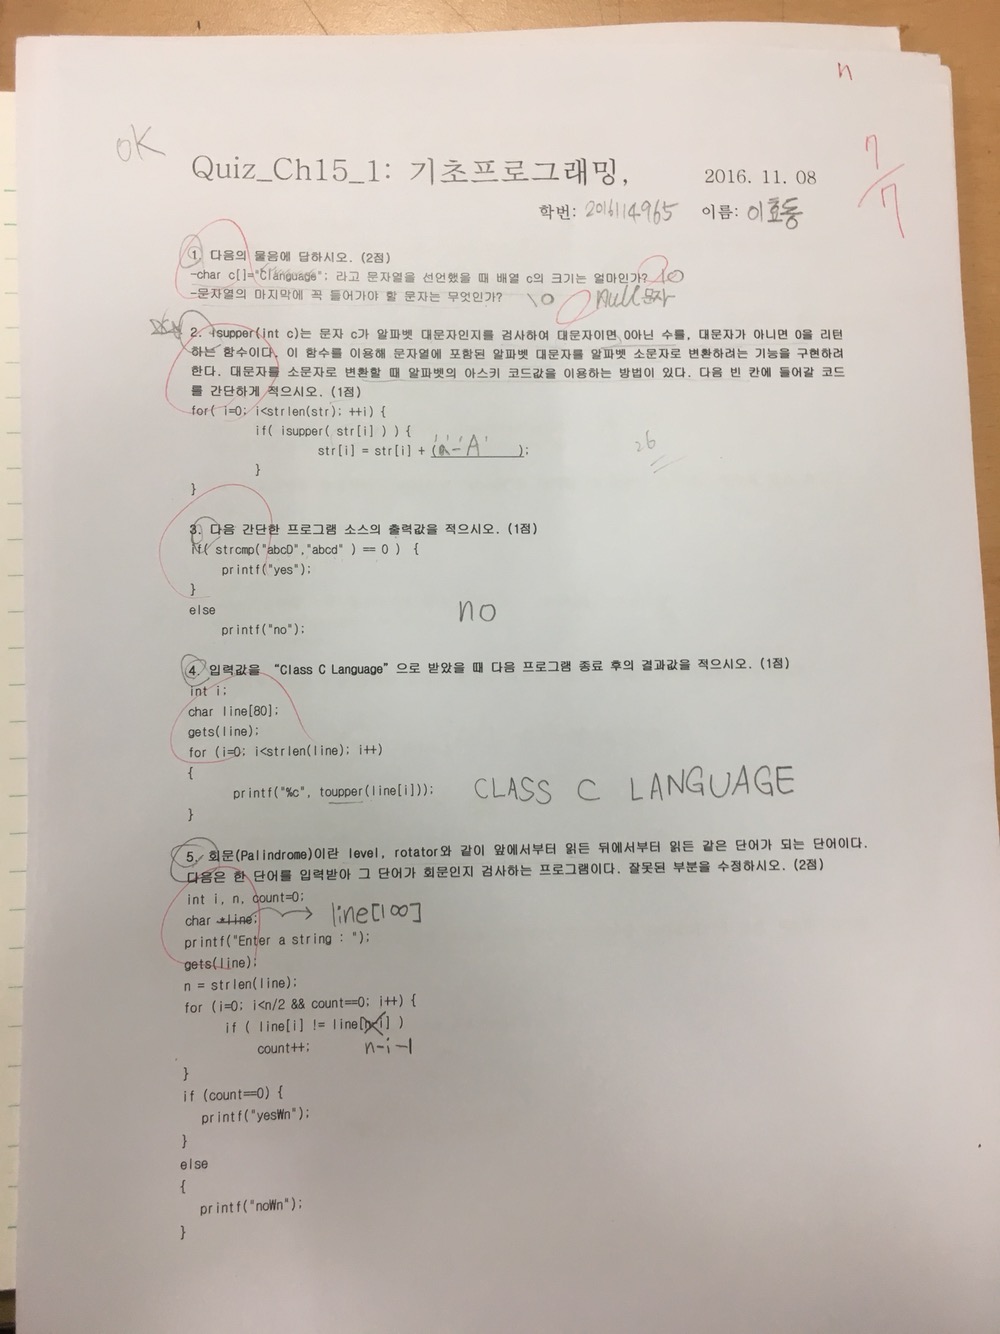 n
OK
Quiz_Ch15_1: 기초프로그래밍,
2016. 11. 08
7/7
학번: 2016114965 이름: 이호동
1. 다음의 물음에 답하시오. (2점)
-char c[]="Clanguage"; 라고 문자열을 선언했을 때 배열 c의 크기는 얼마인가? 10
-문자열의 마지막에 꼭 들어가야 할 문자는 무엇인가? \0 Null 문자
2. isupper(int c)는 문자 c가 알파벳 대문자인지를 검사하여 대문자이면 0아닌 수를, 대문자가 아니면 0을 리턴
하는 함수이다. 이 함수를 이용해 문자열에 포함된 알파벳 대문자를 알파벳 소문자로 변환하려는 기능을 구현하려
한다. 대문자를 소문자로 변환할 때 알파벳의 아스키 코드값을 이용하는 방법이 있다. 다음 빈 칸에 들어갈 코드
를 간단하게 적으시오. (1점)
for( i=0; i<strlen(str); ++i) {
if( isupper( str[i] ) ) {
str[i] = str[i] + ('a'-'A' );
26
}
}
3. 다음 간단한 프로그램 소스의 출력값을 적으시오. (1점)
if( strcmp("abcD","abcd" ) == 0 ) {
printf("yes");
}
else
no
printf("no");
4. 입력값을 “Class C Language” 으로 받았을 때 다음 프로그램 종료 후의 결과값을 적으시오. (1점)
int i;
char line[80];
gets(line);
for (i=0; i<strlen(line); i++)
{
printf("%c", toupper(line[i])); CLASS C LANGUAGE
}
5. 회문(Palindrome)이란 level, rotator와 같이 앞에서부터 읽든 뒤에서부터 읽든 같은 단어가 되는 단어이다.
다음은 한 단어를 입력받아 그 단어가 회문인지 검사하는 프로그램이다. 잘못된 부분을 수정하시오. (2점)
int i, n, count=0;
char *line; line[100]
printf("Enter a string : ");
gets(line);
n = strlen(line);
for (i=0; i<n/2 && count==0; i++) {
if ( line[i] != line[n-i] )
count++; n-i-1
}
if (count==0) {
printf("yes₩n");
}
else
{
printf("no₩n");
}